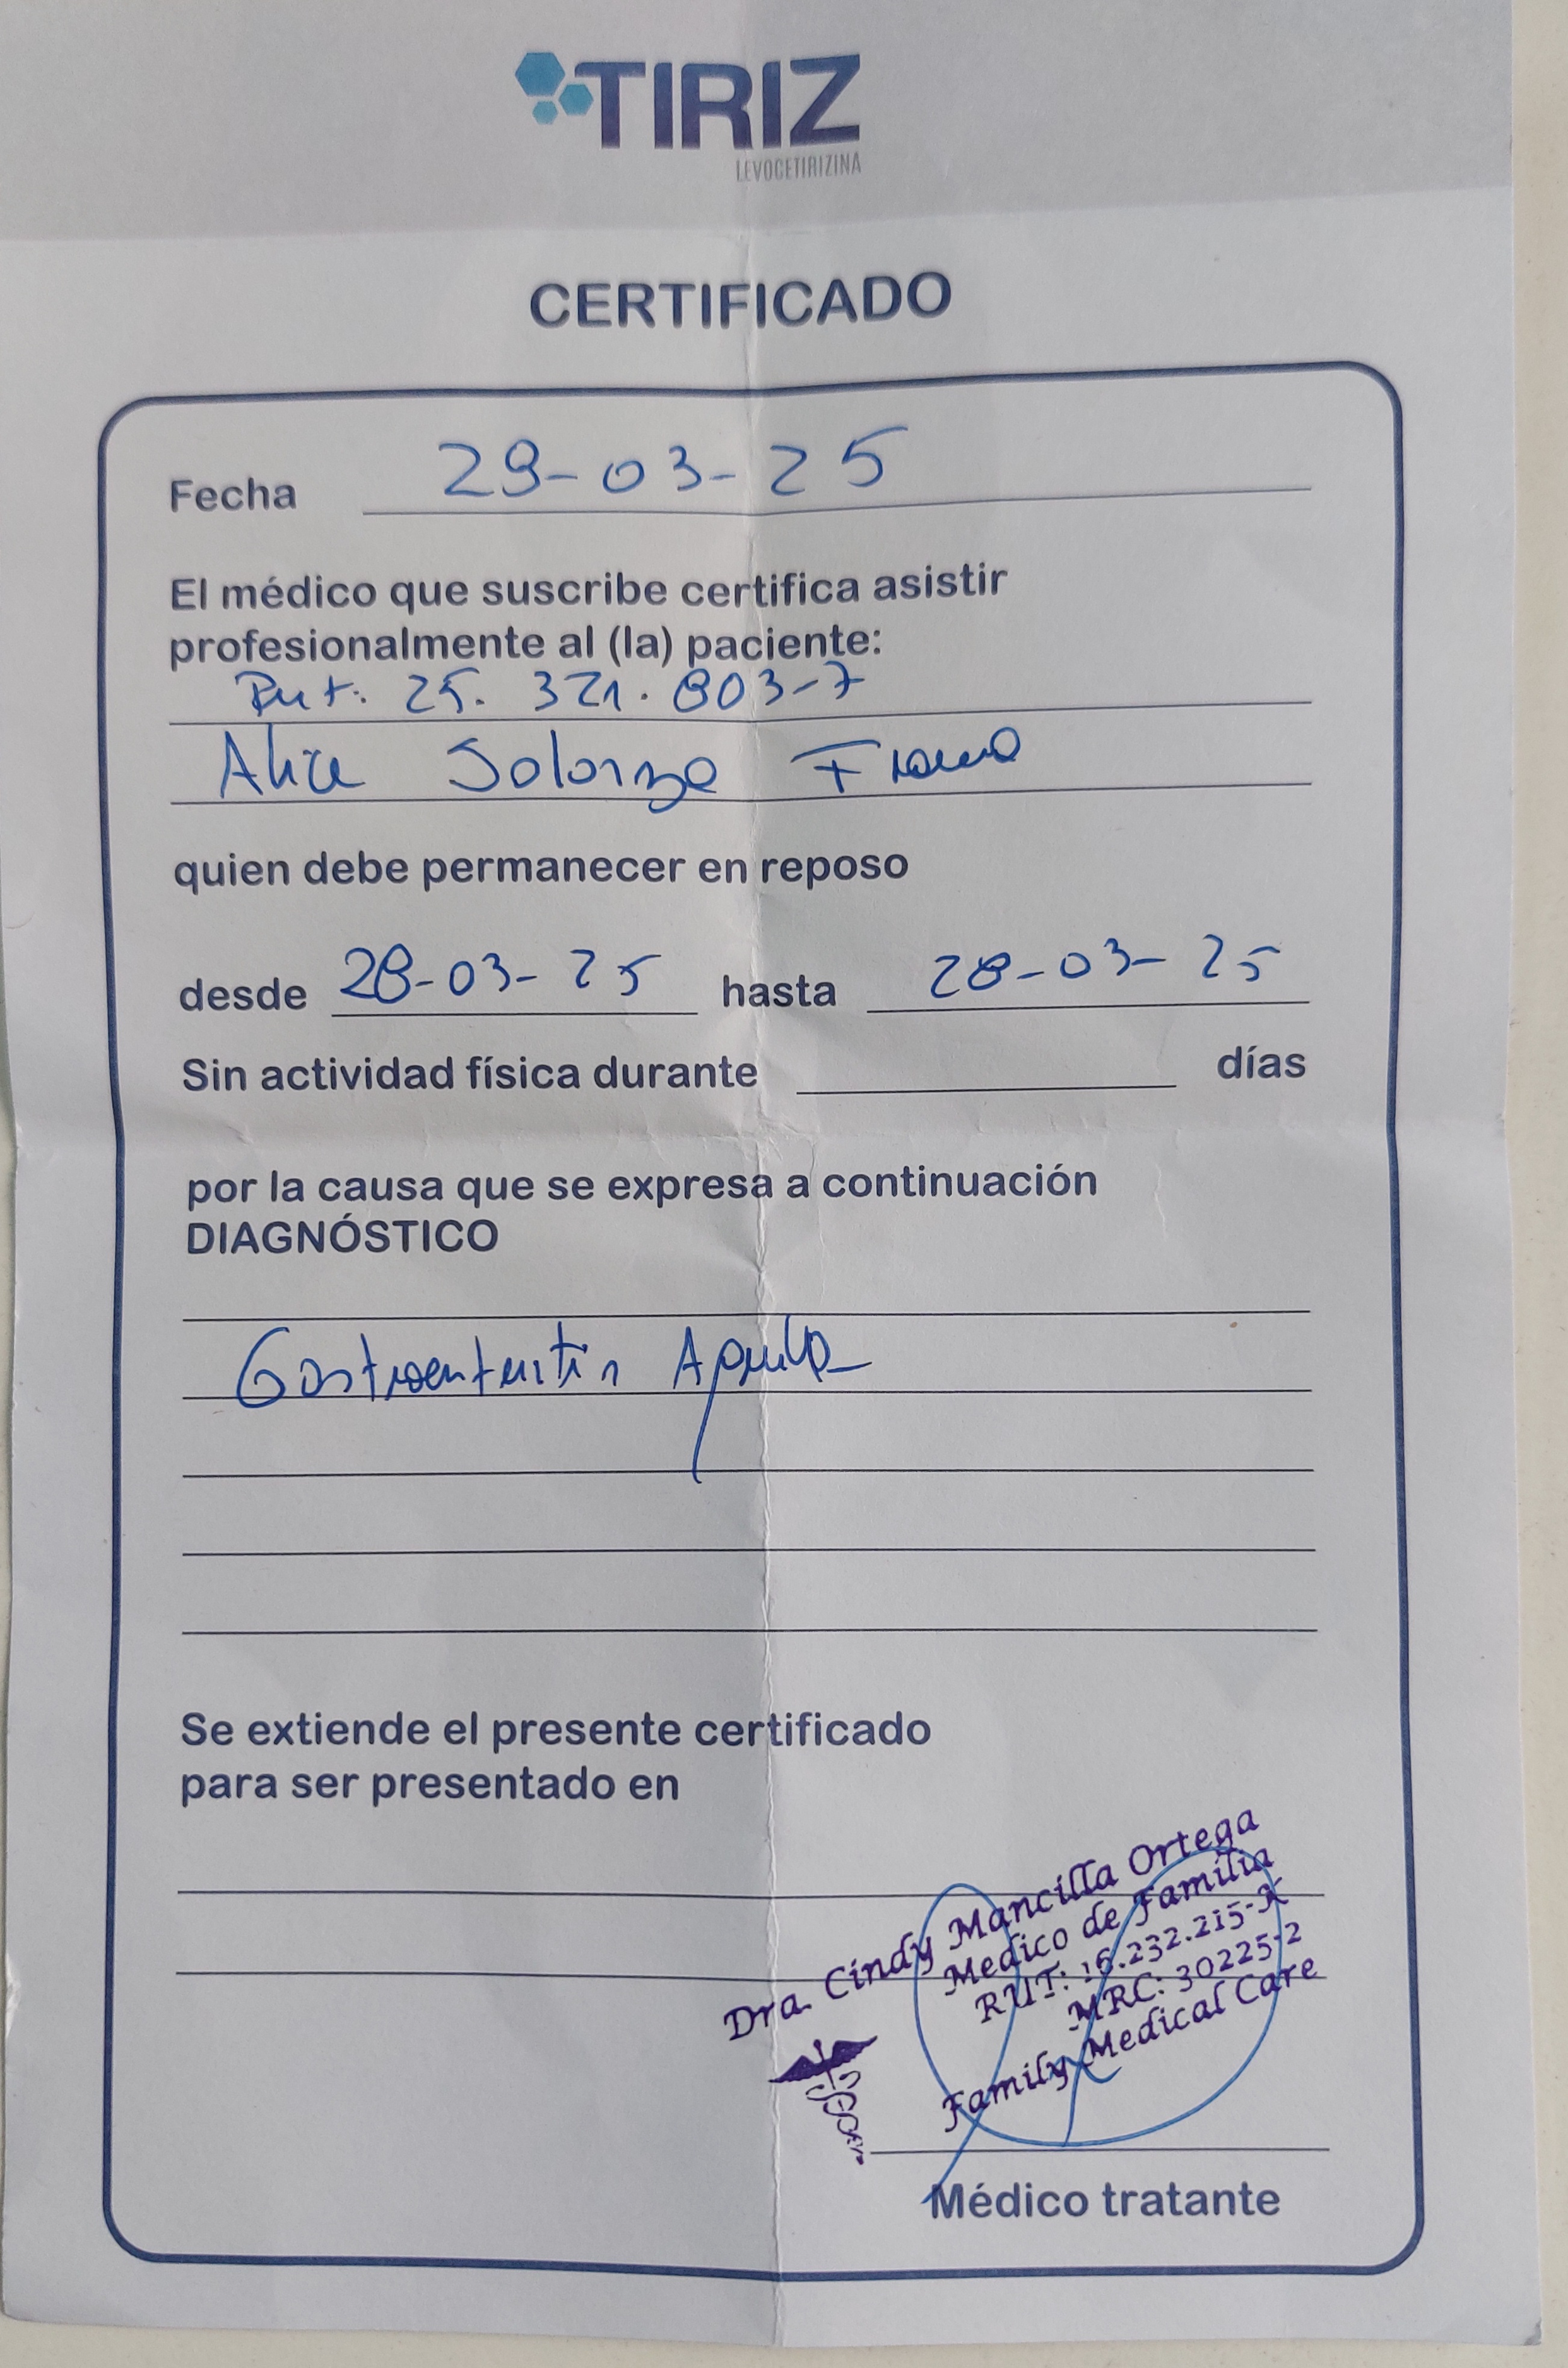 TIRIZ
LEVOCETIRIZINA
CERTIFICADO
Fecha 29-03-25
El médico que suscribe certifica asistir
profesionalmente al (la) paciente:
Rut: 25. 321. 803-7
Alice Solorza
quien debe permanecer en reposo
desde 28-03-25 hasta 28-03-25
Sin actividad física durante días
por la causa que se expresa a continuación
DIAGNÓSTICO
Gastroenteritis Aguda
Se extiende el presente certificado
para ser presentado en
Dra. Cindy Mancilla Ortega
Medico de Familia
RUT: 16.232.215-K
MRC: 30225-2
Family Medical Care
Médico tratante